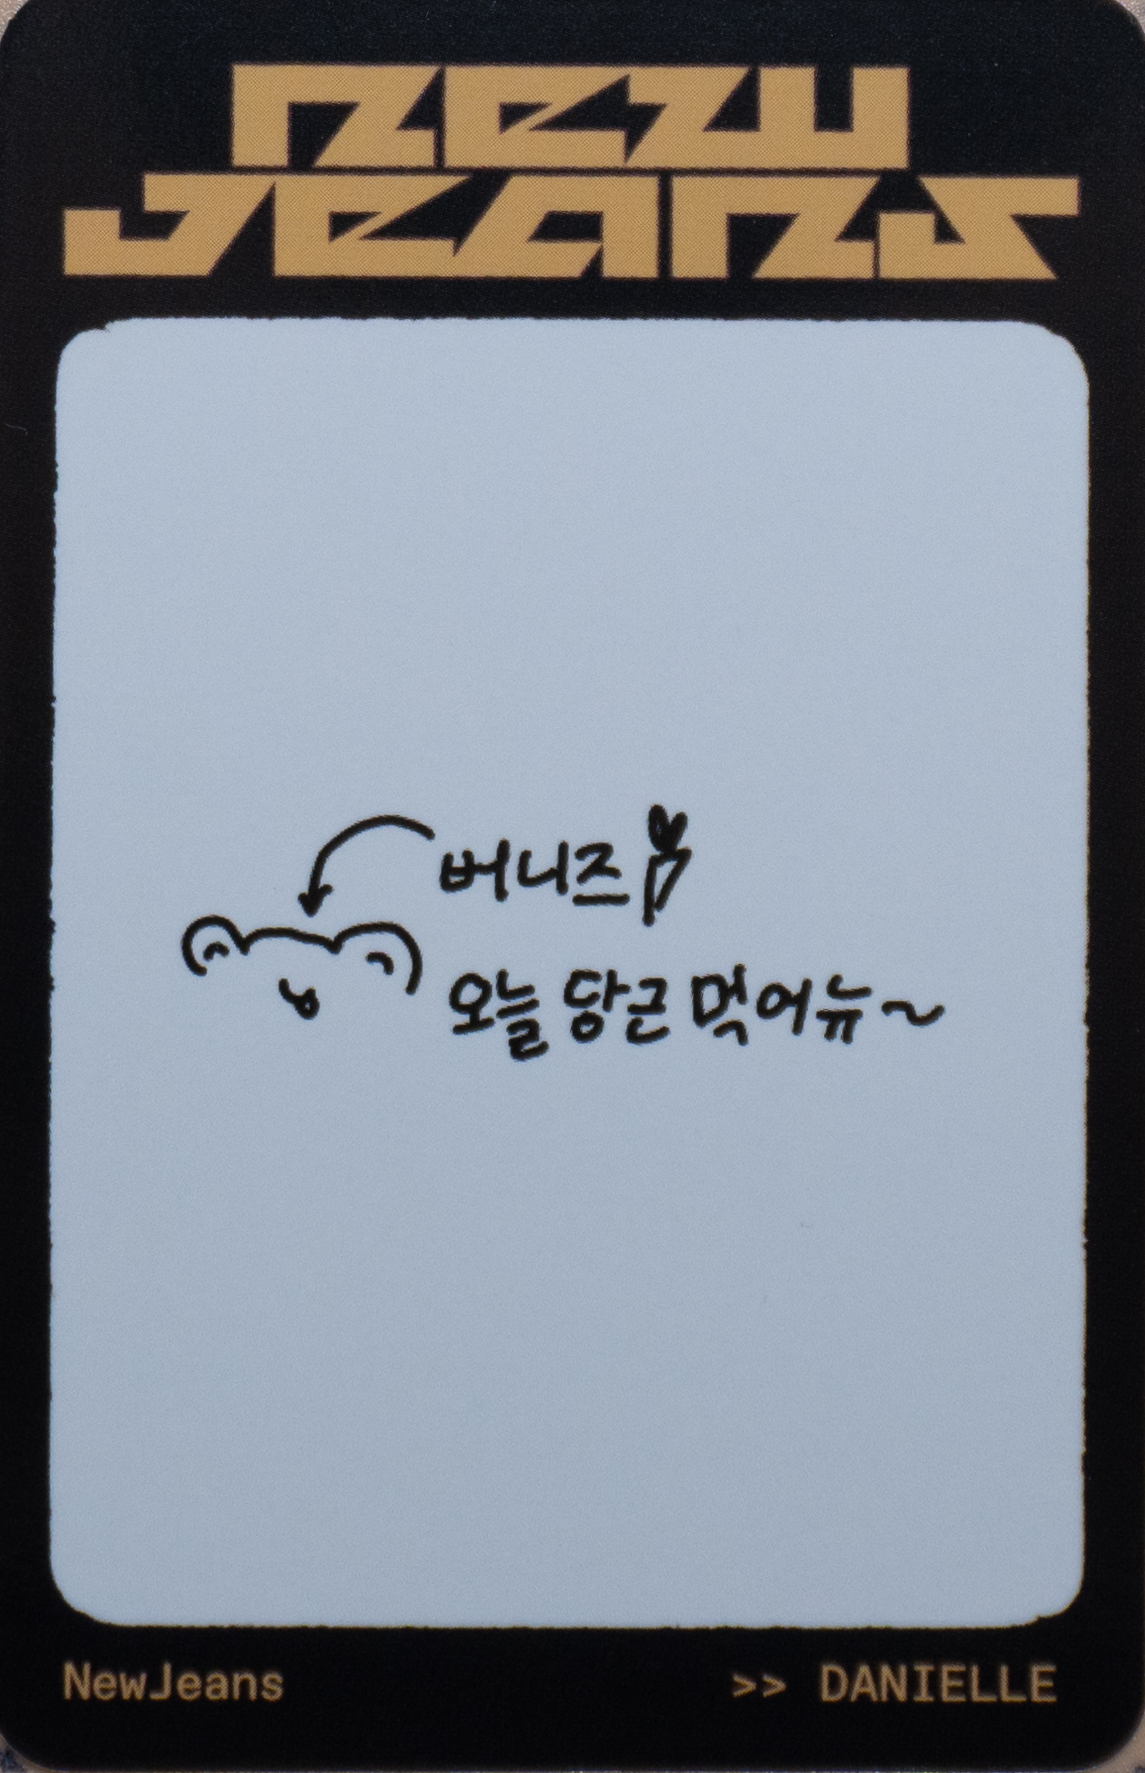 New
Jeans
버니즈
오늘 당근 먹어뉴~
NewJeans >> DANIELLE